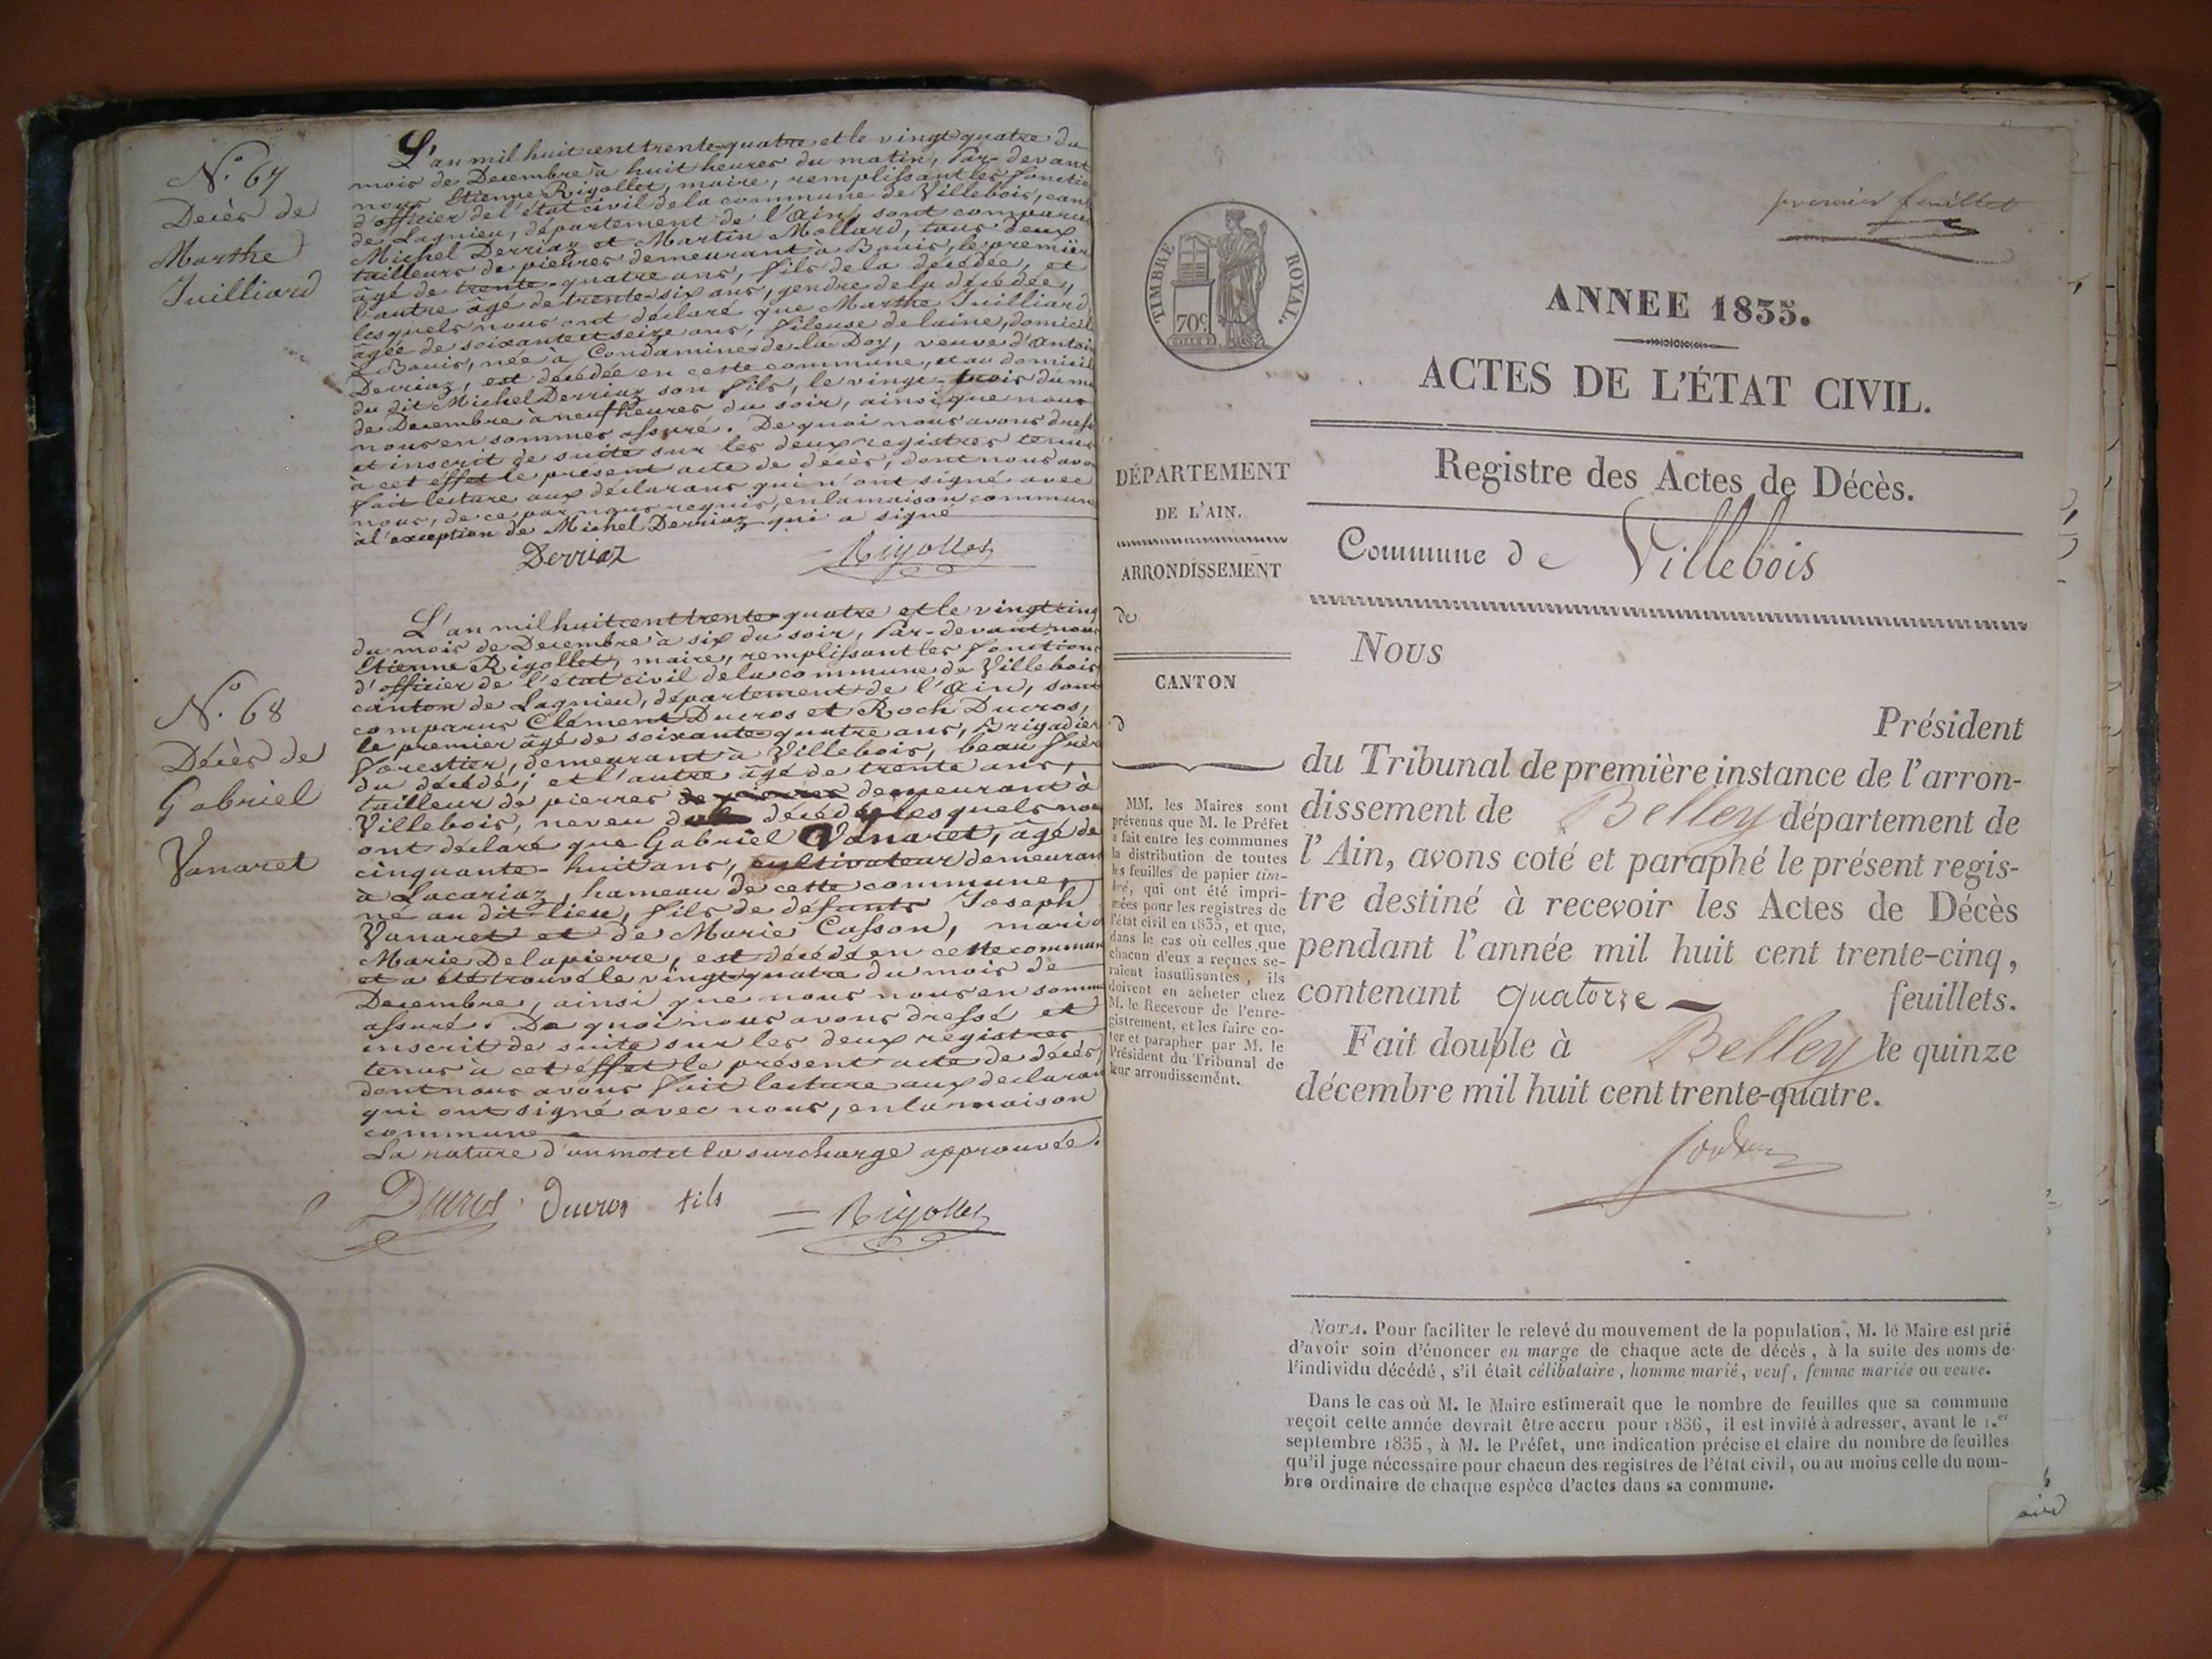 N.° 67
Décès de
Marthe
Juilliard
L'an mil huit cent trente-quatre et le vingt quatre du
mois de Decembre à huit heures du matin, Par-devant
nous Etienne Rigollet, maire, remplissant les fonctio
d'officier de l'état civil de la commune de Villebois, cant
de Lagnieu, département de l'Ain, sont comparus
Michel Derriaz et Martin Mollard, tous deux
tailleurs de pierres demeurant à Bouis, le premier
âgé de trente-quatre ans, fils de la décédée, et
l'autre âgé de trente-six ans, gendre de la décédée,
lesquels nous ont déclaré que Marthe Juilliard,
âgée de soixante et seize ans, fileuse de laine, domicili
à Bouis, née à Condamine de la Doy, veuve d'Antoi
Derriaz, est décédée en cette commune, et au domicil
du dit Michel Derriaz son fils, le vingt-trois du mo
de Decembre à neuf heures du soir, ainsi que nous
nous en sommes assuré. De quoi nous avons dressé
et inscrit de suite sur les deux registres tenus
à cet effet le présent acte de décès, dont nous avo
fait lecture aux déclarans qui n'ont signé avec
nous, de ce par nous requis, en la maison commune
à l'exception de Michel Derriaz qui a signé
Derriaz Rigollet
N.° 68
Décès de
Gabriel
Vanaret
L'an mil huit cent trente-quatre et le vingt cinq
du mois de Decembre à six du soir, Par-devant nous
Etienne Rigollet, maire, remplissant les fonctions
d'officier de l'état civil de la commune de Villebois
canton de Lagnieu, département de l'Ain, sont
comparus Clément Ducros et Roch Ducros,
le premier âgé de soixante-quatre ans, Brigadier
forestier, demeurant à Villebois, beau frère
du décédé; et l'autre âgé de trente ans,
tailleur de pierres de pierres demeurant à
Villebois, neveu du décédé, lesquels nous
ont déclaré que Gabriel Vanaret, âgé de
cinquante-huit ans, cultivateur demeurant
à Lacariaz, hameau de cette commune,
né au dit lieu, fils de défunts Joseph
Vanaret et de Marie Casson, marié
Marie Delapierre, est décédé en cette commun
et a été trouvé le vingt quatre du mois de
Decembre, ainsi que nous nous en somme
assuré. De quoi nous avons dressé et
inscrit de suite sur les deux registres
tenus à cet effet le présent acte de décès
dont nous avons fait lecture aux declarans
qui ont signé avec nous, en la maison
commune
La rature d'un mot et la surcharge approuvée.
Ducros Ducros fils Rigollet
premier feuillet
TIMBRE ROYAL.
70c
ANNEE 1835.
ACTES DE L'ÉTAT CIVIL.
Registre des Actes de Décès.
Commune de Villebois
DÉPARTEMENT
DE L'AIN.
ARRONDISSEMENT
de
CANTON
d
MM. les Maires sont
prévenus que M. le Préfet
a fait entre les communes
la distribution de toutes
les feuilles de papier tim-
bré, qui ont été impri-
mées pour les registres de
l'état civil en 1835, et que,
dans le cas où celles que
chacun d'eux a reçues se-
raient insuffisantes, ils
doivent en acheter chez
M. le Receveur de l'enre-
gistrement, et les faire co-
ter et parapher par M. le
Président du Tribunal de
leur arrondissement.
Nous
Président
du Tribunal de première instance de l'arron-
dissement de Belley département de
l'Ain, avons coté et paraphé le présent regis-
tre destiné à recevoir les Actes de Décès
pendant l'année mil huit cent trente-cinq,
contenant quatorze feuillets.
Fait double à Belley le quinze
décembre mil huit cent trente-quatre.
NOTA. Pour faciliter le relevé du mouvement de la population, M. le Maire est prié
d'avoir soin d'énoncer en marge de chaque acte de décès, à la suite des noms de
l'individu décédé, s'il était célibataire, homme marié, veuf, femme mariée ou veuve.
Dans le cas où M. le Maire estimerait que le nombre de feuilles que sa commune
reçoit cette année devrait être accru pour 1836, il est invité à adresser, avant le 1.er
septembre 1835, à M. le Préfet, une indication précise et claire du nombre de feuilles
qu'il juge nécessaire pour chacun des registres de l'état civil, ou au moins celle du nom-
bre ordinaire de chaque espèce d'actes dans sa commune.